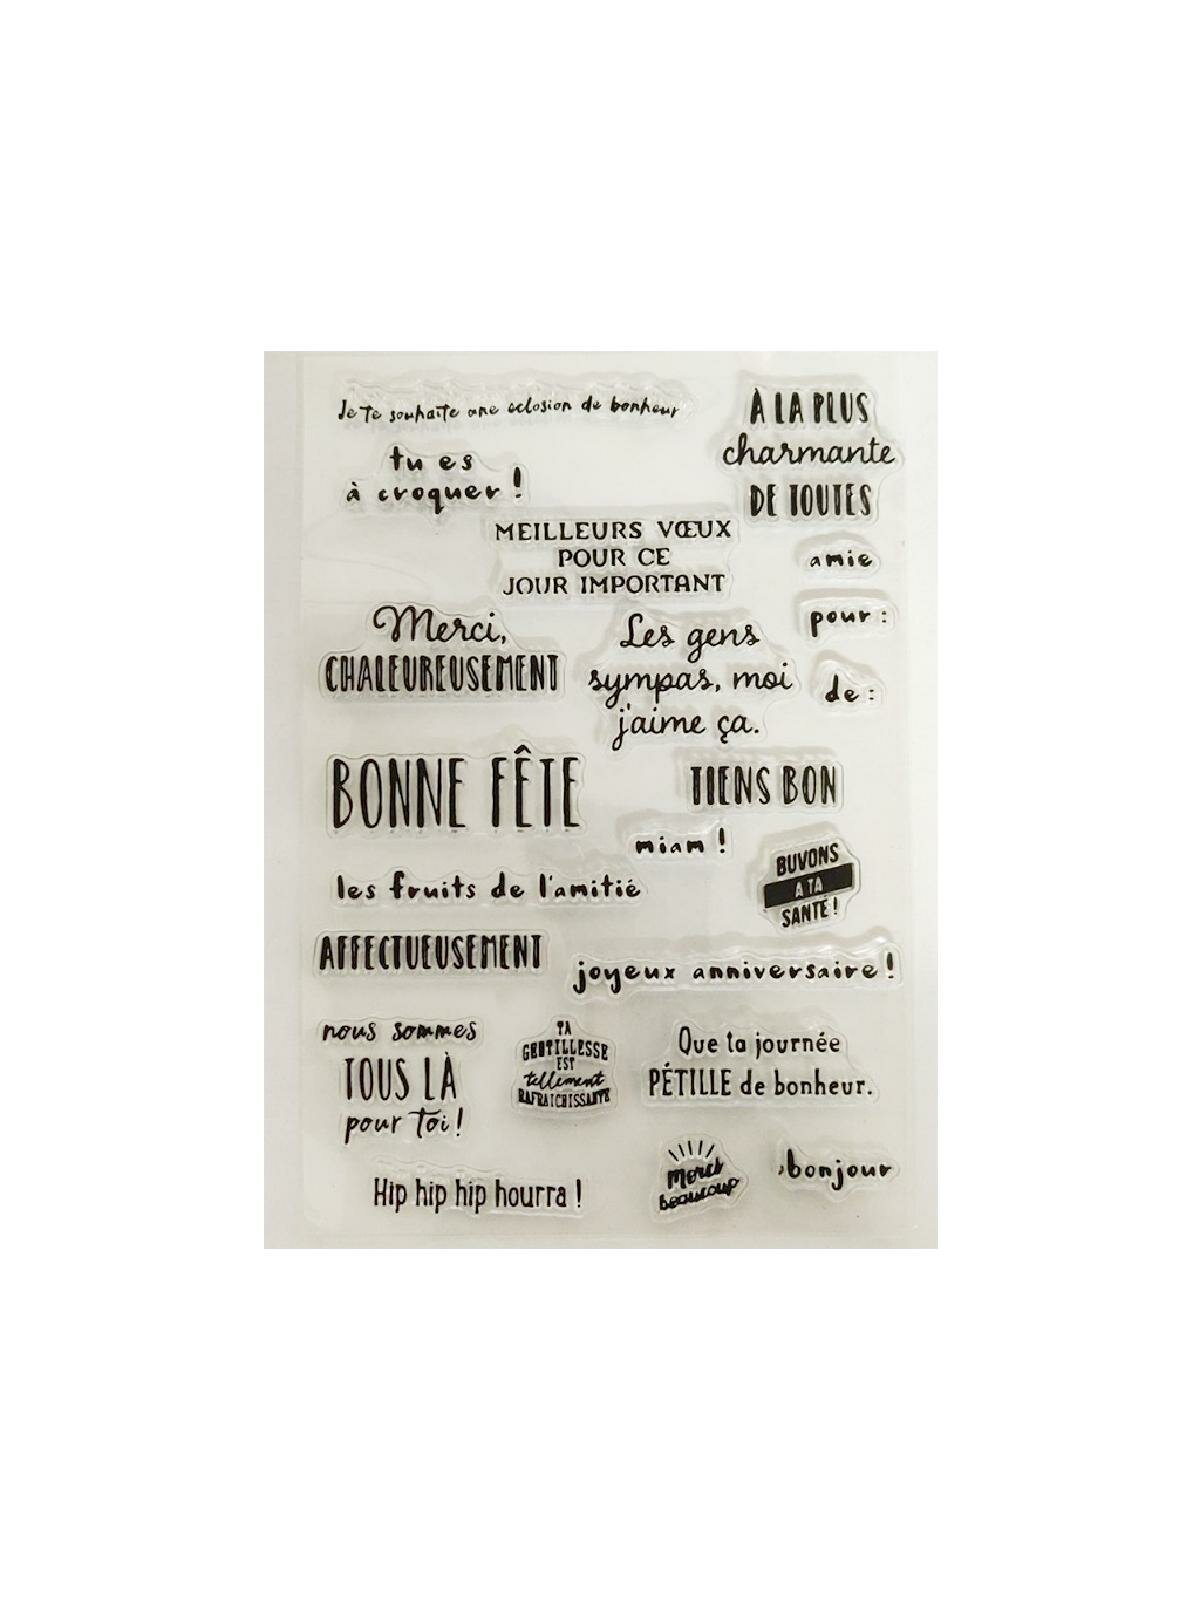 Je te souhaite une eclosion de bonheur
À LA PLUS
charmante
DE TOUTES
tu es
à croquer !
MEILLEURS VŒUX
POUR CE
JOUR IMPORTANT
amie
pour :
de :
Merci,
CHALEUREUSEMENT
Les gens
sympas, moi
j'aime ça.
BONNE FÊTE
TIENS BON
miam !
BUVONS
A TA
SANTÉ !
les fruits de l'amitié
AFFECTUEUSEMENT
joyeux anniversaire !
nous sommes
TOUS LÀ
pour toi !
TA
GENTILLESSE
EST
tellement
RAFRAICHISSANTE
Que ta journée
PÉTILLE de bonheur.
Hip hip hip hourra !
Merci
beaucoup
bonjour